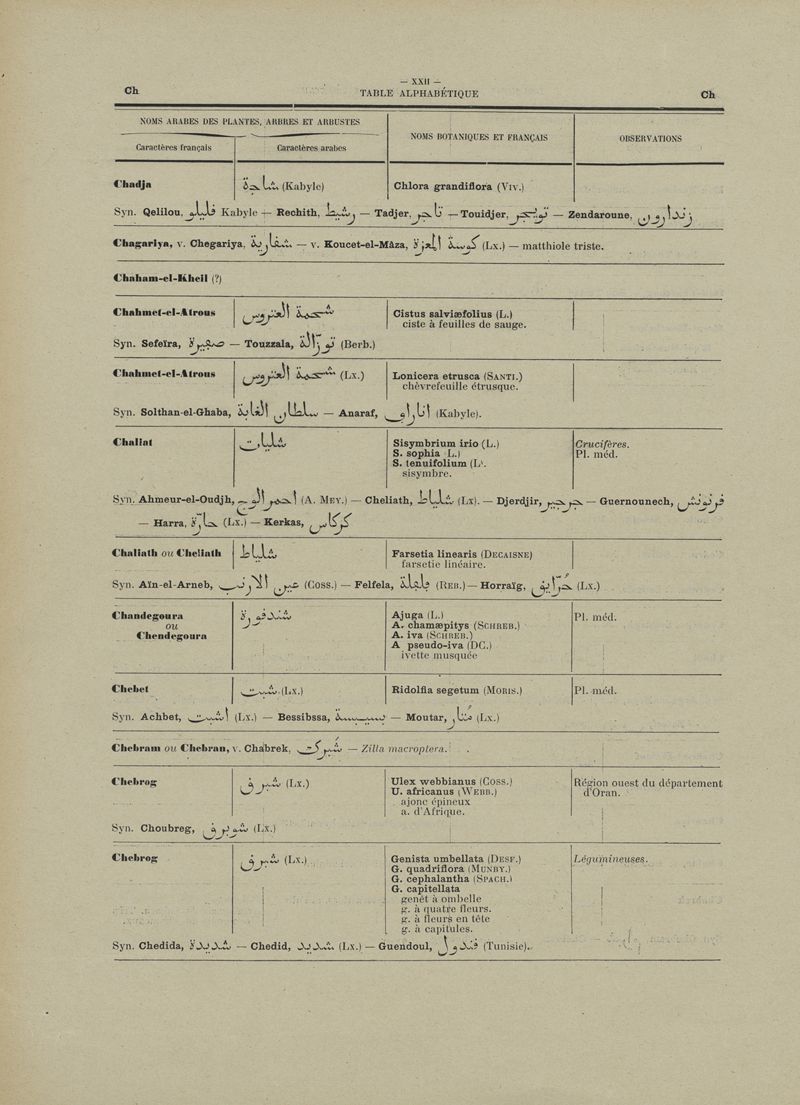 — XXII —
Ch TABLE ALPHABÉTIQUE Ch
NOMS ARABES DES PLANTES, ARBRES ET ARBUSTES
NOMS BOTANIQUES ET FRANÇAIS
OBSERVATIONS
Caractères français
Caractères arabes
Chadja شاجة (Kabyle) Chlora grandiflora (Viv.)
Syn. Qelilou, Kabyle — Rechith, — Tadjer, تاجر — Touidjer, تويجر — Zendaroune, زندارون
Chagariya, v. Chegariya, شقارية — v. Koucet-el-Mâza, (Lx.) — matthiole triste.
Chaham-el-Kheil (?)
Chahmet-el-Atrous شحمة العتروس Cistus salviæfolius (L.)
ciste à feuilles de sauge.
Syn. Sefeïra, صفيرة — Touzzala, توزالة (Berb.)
Chahmet-el-Atrous شحمة العتروس (Lx.) Lonicera etrusca (Santi.)
chèvrefeuille étrusque.
Syn. Solthan-el-Ghaba, سلطان الغابة — Anaraf, (Kabyle).
Chaliat شليات Sisymbrium irio (L.) Crucifères.
S. sophia L.) Pl. méd.
S. tenuifolium (L.
sisymbre.
Syn. Ahmeur-el-Oudjh, (A. Mey.) — Cheliath, شلياط (Lx). — Djerdjir, جرجير — Guernounech, قرنونش
— Harra, حارة (Lx.) — Kerkas, كركاس
Chaliath ou Cheliath شلياط Farsetia linearis (Decaisne)
farsetie linéaire.
Syn. Aïn-el-Arneb, عين الارنب (Coss.) — Felfela, فلفلة (Reb.) — Horraïg, حرايق (Lx.)
Chandegoura شندقورة Ajuga (L.) Pl. méd.
ou A. chamæpitys (Schreb.)
Chendegoura A. iva (Schreb.)
A pseudo-iva (DC.)
ivette musquée
Chebet شبت (Lx.) Ridolfia segetum (Moris.) Pl. méd.
Syn. Achbet, اشبت (Lx.) — Bessibssa, — Moutar, (Lx.)
Chebram ou Chebran, v. Chabrek, — Zilla macroptera.
Chebrog شبرق (Lx.) Ulex webbianus (Coss.) Région ouest du département
U. africanus (Webb.) d'Oran.
ajonc épineux
a. d'Afrique.
Syn. Choubreg, شوبرق (Lx.)
Chebrog شبرق (Lx.) Genista umbellata (Desf.) Légumineuses.
G. quadriflora (Munby.)
G. cephalantha (Spach.)
G. capitellata
genêt à ombelle
g. à quatre fleurs.
g. à fleurs en tête
g. à capitules.
Syn. Chedida, شديدة — Chedid, شديد (Lx.) — Guendoul, قندول (Tunisie).